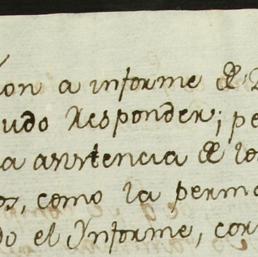 on a informe de
udo Responder; pe
a asistencia de lo
os, como la perma
do el Informe, cor